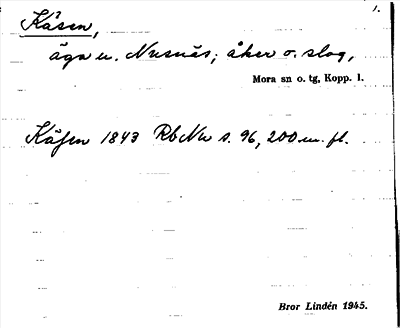 Kåsen, 1.
äga u. Nusnäs; åker o. slog,
Mora sn o. tg, Kopp. l.
Kåsen 1843 Rb Nu s. 96, 200 m. fl.
Bror Lindén 1945.